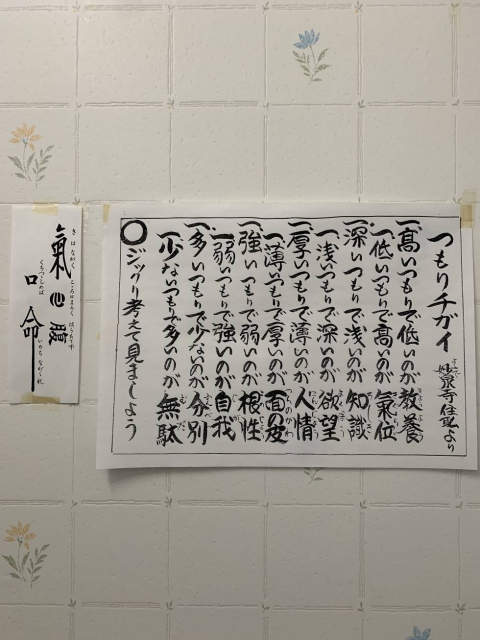 つもりチガイ 妙泉寺住職より
一、高いつもりで低いのが 教養
一、低いつもりで高いのが 氣位
一、深いつもりで浅いのが 知識
一、浅いつもりで深いのが 欲望
一、厚いつもりで薄いのが 人情
一、薄いつもりで厚いのが 面の皮
一、強いつもりで弱いのが 根性
一、弱いつもりで強いのが 自我
一、多いつもりで少ないのが 分別
一、少ないつもりで多いのが 無駄
〇ジックリ考えて見ましょう
きはながく こころはまるく 腹らたてず
氣心腹
くちつつしめば いのちながかれ
口命